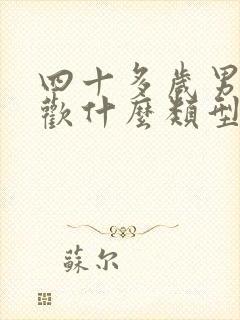 四十多歲男
歡什麼類型
蘇尔